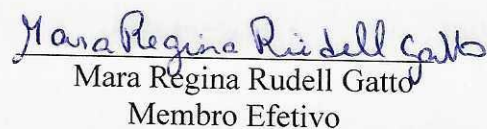 Mara Regina Rudell Gatto
Mara Regina Rudell Gatto
Membro Efetivo